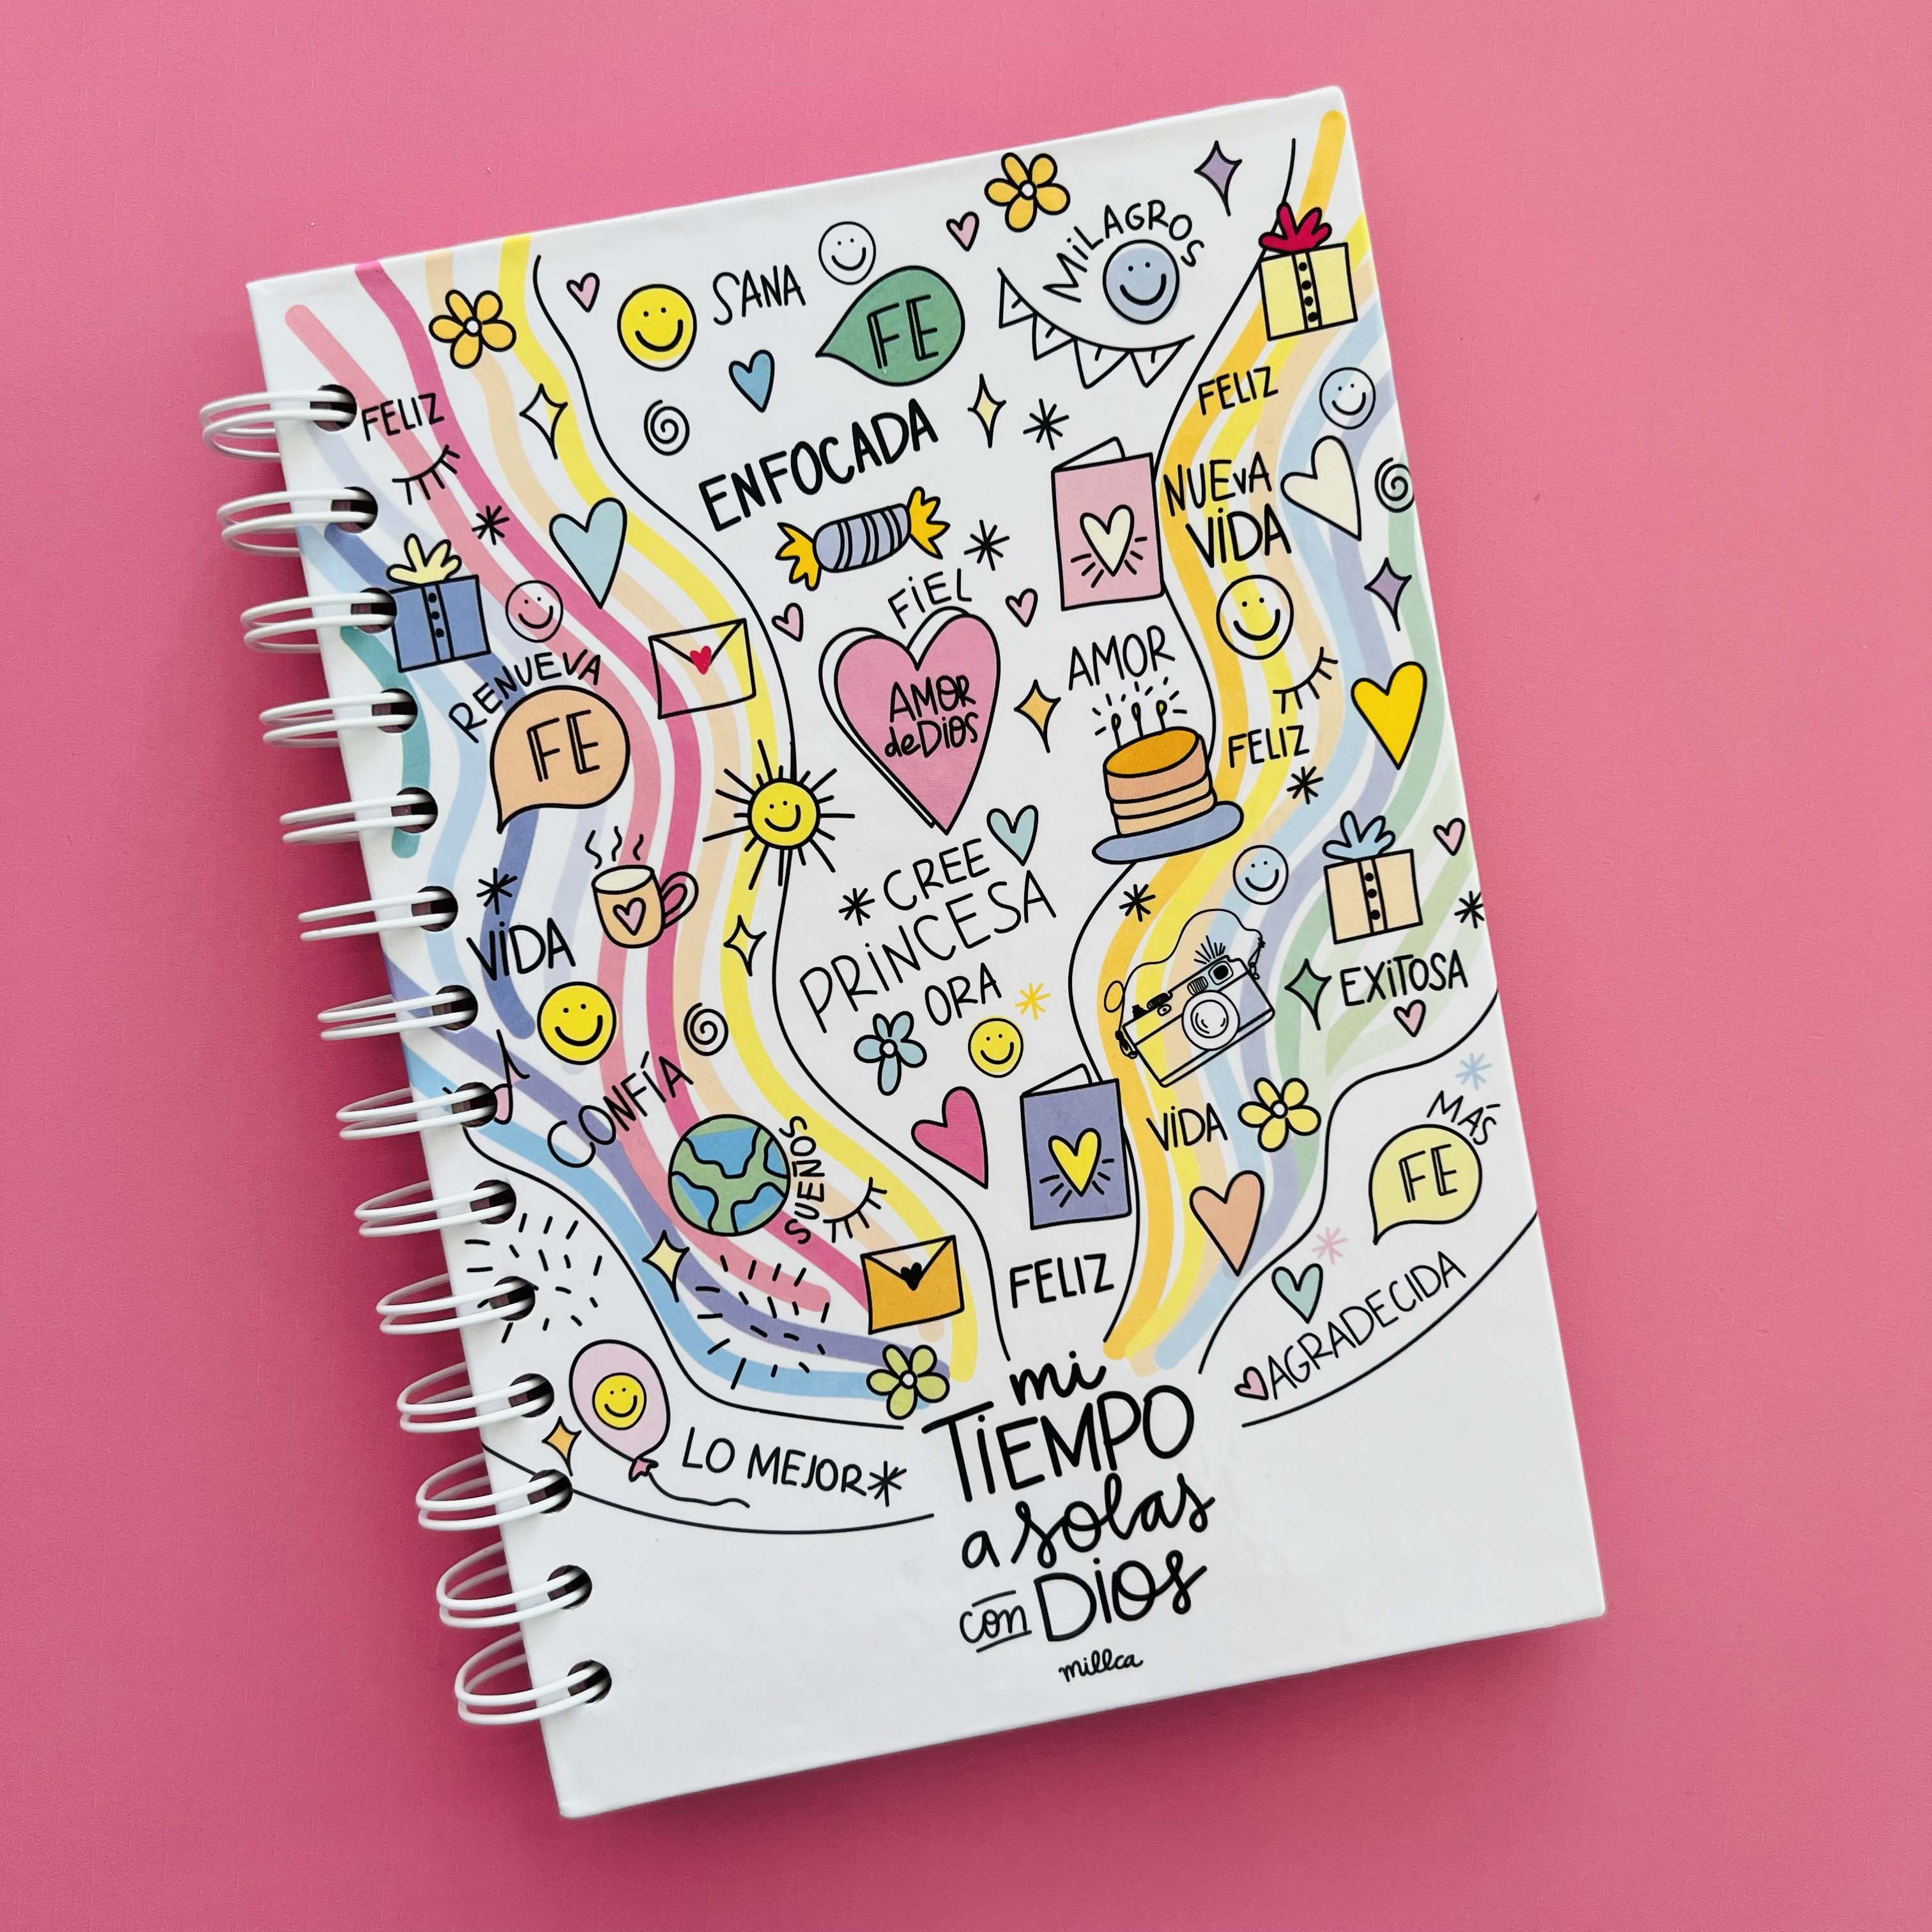 MiLAGROS
SANA
FE
FELIZ
FELIZ
ENFOCADA
NUEVA
ViDA
FiEL
RENUEVA
FE
AMOR
deDiOS
AMOR
FELIZ
CREE
PRiNCESA
ViDA
ORA
EXiTOSA
CONFÍA
SUEÑOS
ViDA
MÁS
FE
FELIZ
AGRADECIDA
LO MEJOR
mi
TiEMPO
a solas
con DiOS
millca